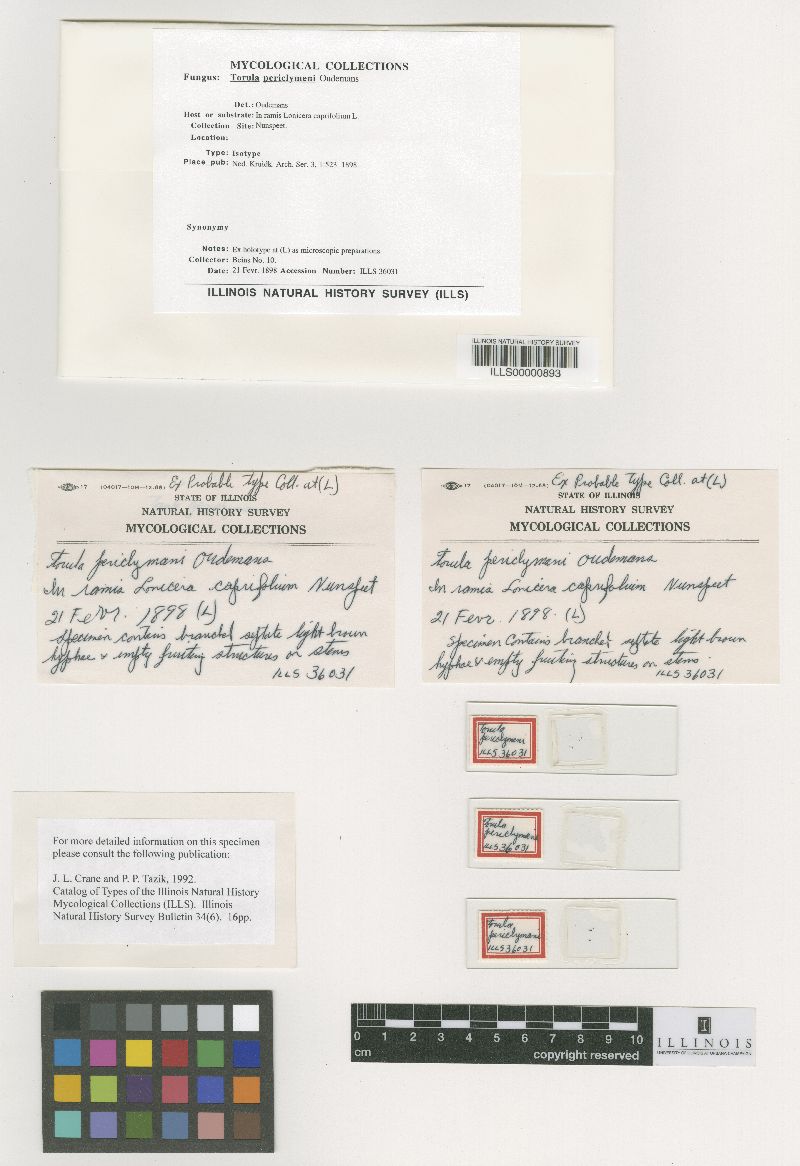 MYCOLOGICAL COLLECTIONS
Fungus: Torula periclymeni Oudemans
Det.: Oudemans
Host or substrate: In ramis Lonicera caprifolium L.
Collection Site: Nunspeet.
Location:
Type: Isotype
Place pub: Ned. Kruidk. Arch. Ser. 3, 1:523. 1898.
Synonymy
Notes: Ex holotype at (L) as microscopic preparations
Collector: Beins No. 10.
Date: 21 Fevr. 1898 Accession Number: ILLS 36031
ILLINOIS NATURAL HISTORY SURVEY (ILLS)
ILLINOIS NATURAL HISTORY SURVEY
ILLS00000893
17 (04017—10M—12-68) Ex Probable Type Coll. at (L)
STATE OF ILLINOIS
NATURAL HISTORY SURVEY
MYCOLOGICAL COLLECTIONS
Torula periclymani Oudemans
In ramis Lonicera caprifolium Nunspeet
21 Fevr. 1898 (L)
Specimen contains branched septate light brown
hyphae & empty fruiting structures on stems
ILLS 36031
17 (04017—10M—12-68) Ex Probable Type Coll. at (L)
STATE OF ILLINOIS
NATURAL HISTORY SURVEY
MYCOLOGICAL COLLECTIONS
Torula periclymani Oudemans
In ramis Lonicera caprifolium Nunspeet
21 Fevr. 1898. (L)
Specimen contains branched septate light brown
hyphae & empty fruiting structures on stems
ILLS 36031
Torula
periclymani
ILLS 36031
Torula
periclymani
ILLS 36031
Torula
periclymani
ILLS 36031
For more detailed information on this specimen
please consult the following publication:
J. L. Crane and P. P. Tazik, 1992.
Catalog of Types of the Illinois Natural History
Mycological Collections (ILLS). Illinois
Natural History Survey Bulletin 34(6). 16pp.
0 1 2 3 4 5 6 7 8 9 10
cm
copyright reserved
I
ILLINOIS
UNIVERSITY OF ILLINOIS AT URBANA-CHAMPAIGN